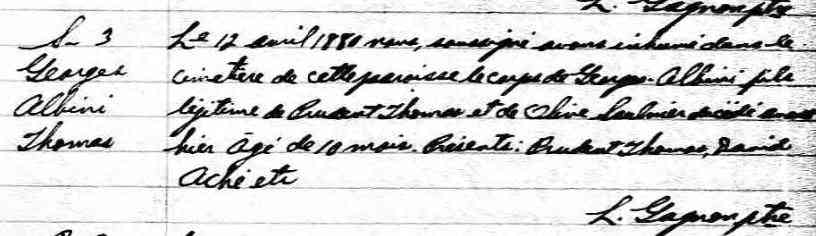 L. Gagnon ptre
S-3 Le 12 avril 1880 nous, soussigné avons inhumé dans le
Georges cimetière de cette paroisse le corps de Georges-Albini fils
Albini légitime de Prudent Thomas et de Olive Saulnier décédé avant
Thomas hier âgé de 10 mois. Présents: Prudent Thomas, David
Aché etc
L. Gagnon ptre